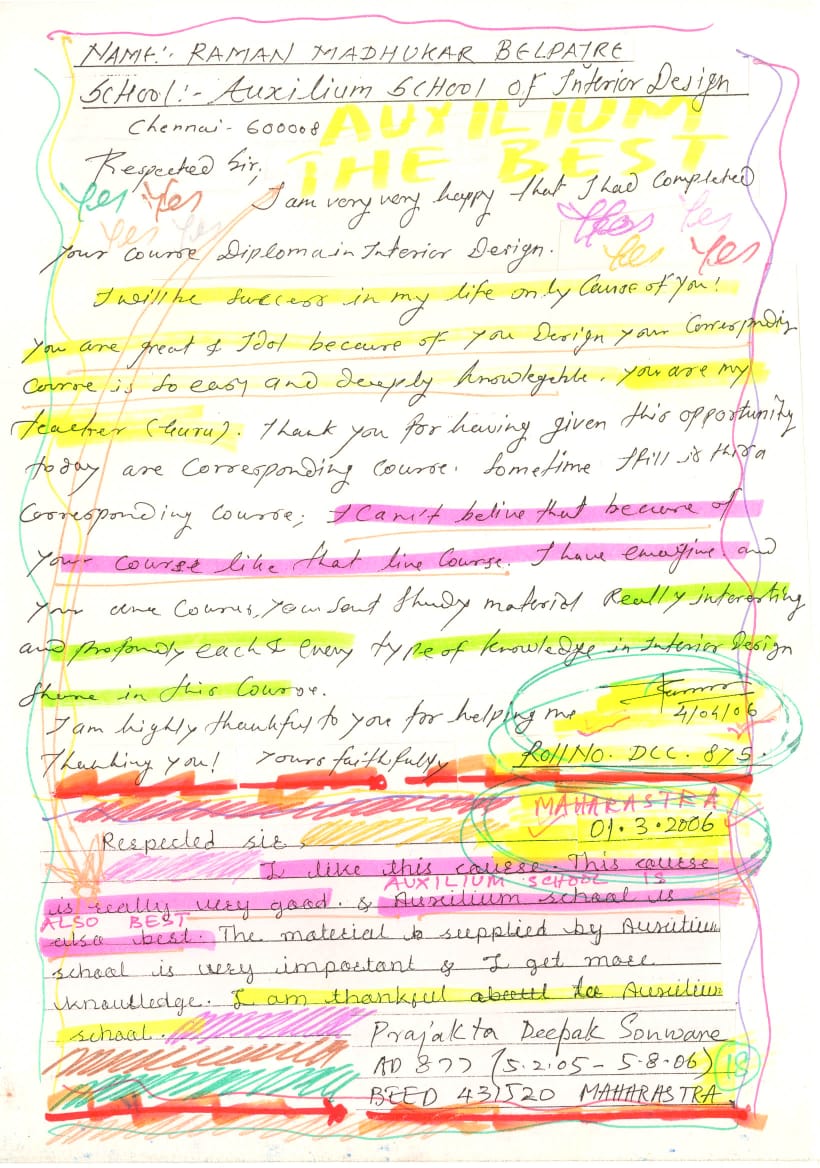 NAME:- RAMAN MADHUKAR BELPATRE
SCHOOL:- Auxilium SCHOOL of Interior Design
Chennai - 600008
AUXILIUM
THE BEST
Respected Sir,
Yes Yes
I am very very happy that I had completed
Yes Yes
Yes Yes
Your Course Diploma in Interior Design.
Yes Yes
I will be success in my life only Cause of You!
You are great & Idol because of you Design your Correspondig
Course is so easy and deeply knowlegeble. You are my
teacher (Guru). Thank you for having given this opportunity
today are Corresponding Course. Sometime I fill is this a
Corresponding Course; I can't belive that because of
Your course like that live Course. I have emagine and
your Course, You sent study material Really interesting
and profondly each & every type of knowledge in Interior Design
theme in this Course.
I am highly thankful to you for helping me
4/04/06
Thanking you! Yours faithfully
Roll No. DCC. 875.
MAHARASTRA
01.3.2006
Respected sir,
I like this course. This course
AUXILIUM SCHOOL IS
is really very good. & Auxilium school is
ALSO BEST
also best. The material is supplied by Auxilium
school is very important & I get more
knowledge. I am thankful to Auxilium
school.
Prajakta Deepak Sonware
AD 877 (5.2.05 - 5.8.06) 18
BEED 431520 MAHARASTRA.